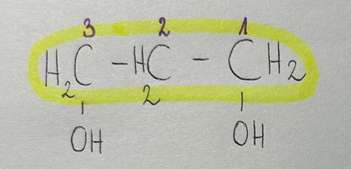 3 2 1
H₂C – H₂C – CH₂
OH OH